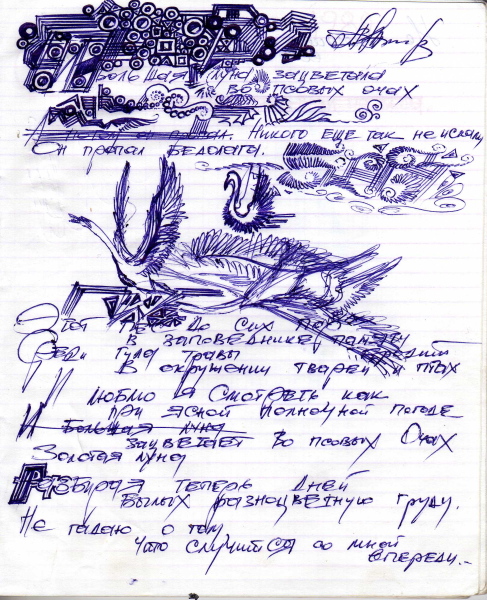 Большая луна зацветала
во псовых очах
Никого еще так не искали
Он пропал бедолага.
Этот пес до сих пор
в заповеднике памяти
Среди гула травы бредит
В окружении тварей и птах
И люблю я смотреть как
при ясной полночной погоде
Большая луна
зацветает во псовых очах
Золотая луна
Разбирая теперь дней
былых разноцветную груду.
Не гадаю о том
Что случится со мной
впереди.